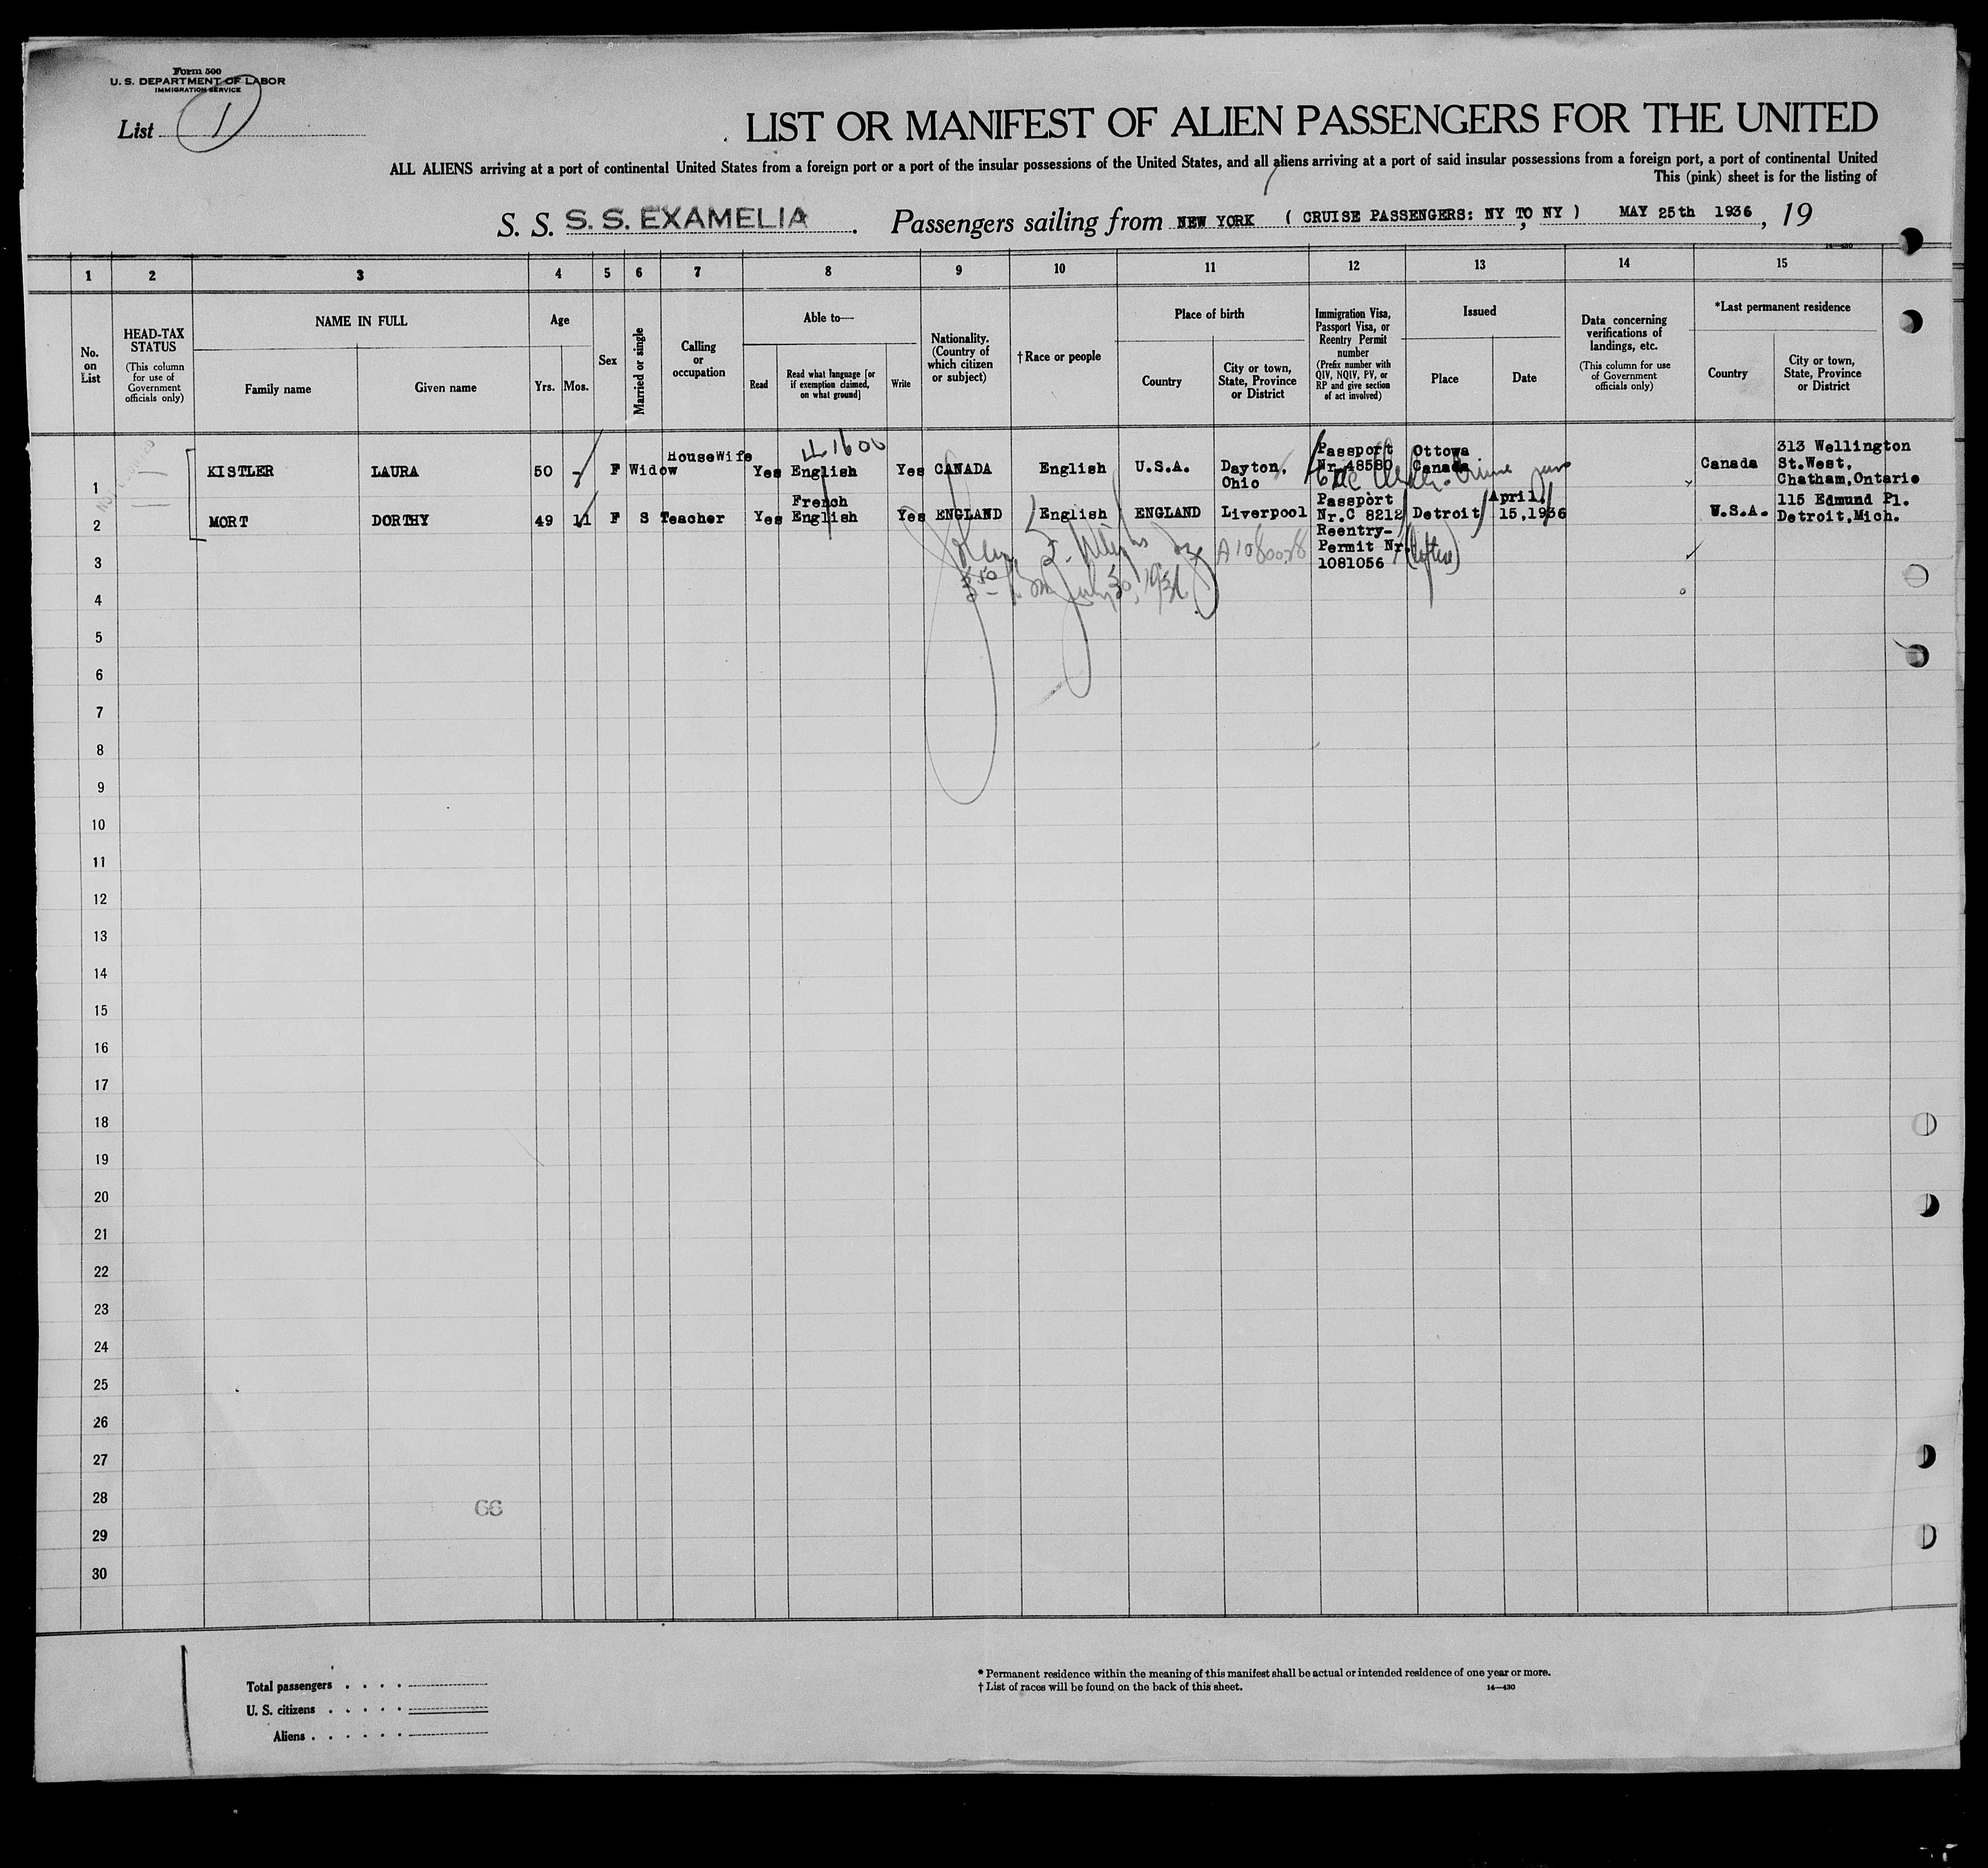 Form 500
U. S. DEPARTMENT OF LABOR
IMMIGRATION SERVICE
List 1
LIST OR MANIFEST OF ALIEN PASSENGERS FOR THE UNITED
ALL ALIENS arriving at a port of continental United States from a foreign port or a port of the insular possessions of the United States, and all aliens arriving at a port of said insular possessions from a foreign port, a port of continental United
This (pink) sheet is for the listing of
S. S. S. S. EXAMELIA. Passengers sailing from NEW YORK ( CRUISE PASSENGERS: NY TO NY ), MAY 25th 1936, 19
14—430
1 2 3 4 5 6 7 8 9 10 11 12 13 14 15
No. on List
HEAD-TAX STATUS
(This column for use of Government officials only)
NAME IN FULL
Family name
Given name
Age
Yrs.
Mos.
Sex
Married or single
Calling or occupation
Able to—
Read
Read what language [or if exemption claimed, on what ground]
Write
Nationality. (Country of which citizen or subject)
† Race or people
Place of birth
Country
City or town, State, Province or District
Immigration Visa, Passport Visa, or Reentry Permit number
(Prefix number with QIV, NQIV, PV, or RP and give section of act involved)
Issued
Place
Date
Data concerning verifications of landings, etc.
(This column for use of Government officials only)
*Last permanent residence
Country
City or town, State, Province or District
1 KISTLER LAURA 50 - F Widow HouseWife Yes English Yes CANADA English U.S.A. Dayton, Ohio Passport Nr. 48580 Ottowa Canada Canada 313 Wellington St.West, Chatham,Ontario
2 MORT DORTHY 49 11 F S Teacher Yes French English Yes ENGLAND English ENGLAND Liverpool Passport Nr.C 8212 Reentry-Permit Nr. 1081056 Detroit April. 15,1936 U.S.A. 115 Edmund Pl. Detroit,Mich.
A1080028
July 30, 1936
3
4
5
6
7
8
9
10
11
12
13
14
15
16
17
18
19
20
21
22
23
24
25
26
27
28
29
30
66
Total passengers . . . .
U. S. citizens . . . . .
Aliens . . . . . .
* Permanent residence within the meaning of this manifest shall be actual or intended residence of one year or more.
† List of races will be found on the back of this sheet.
14—430